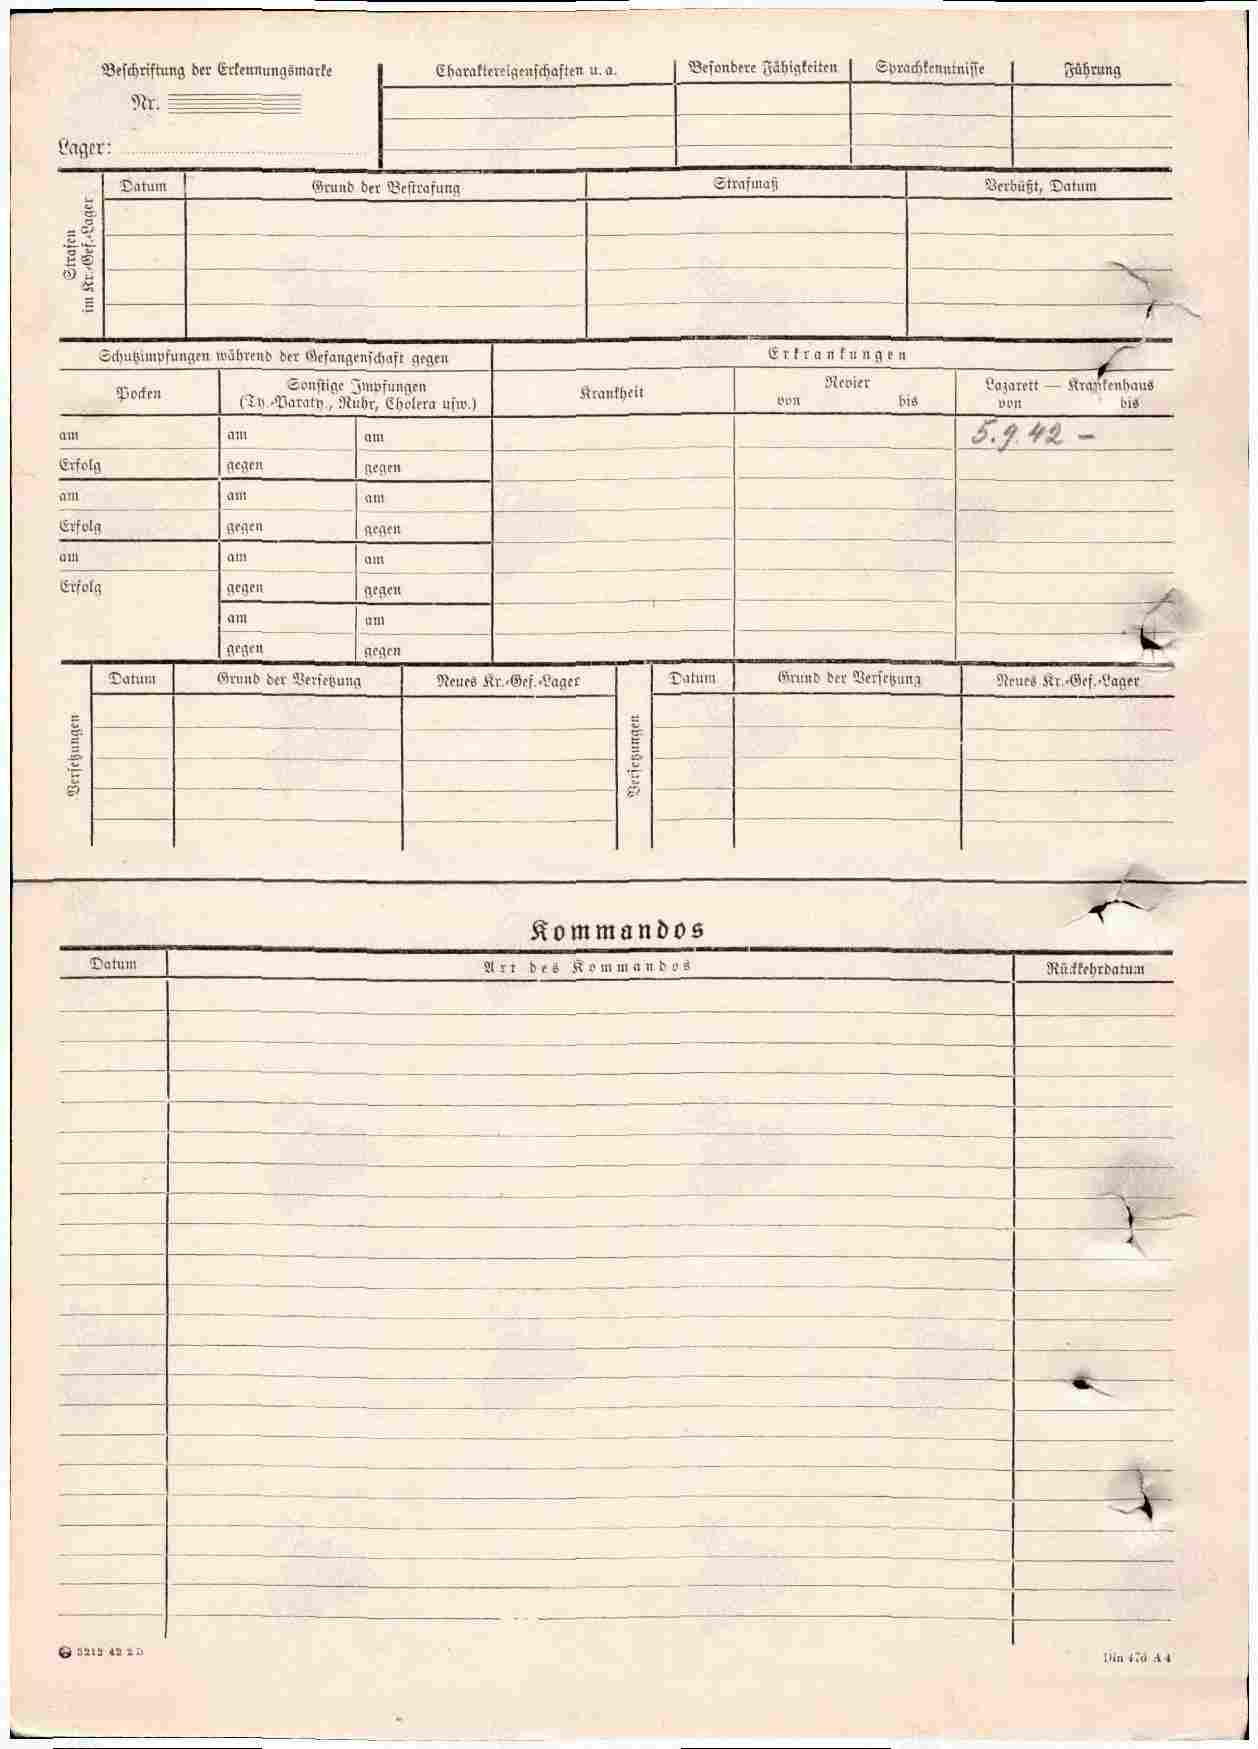 Beschriftung der Erkennungsmarke
Nr.
Lager:
Charaktereigenschaften u. a. Besondere Fähigkeiten Sprachkenntnisse Führung
Strafen
im Kr.-Gef.-Lager
Datum Grund der Bestrafung Strafmaß Verbüßt, Datum
Schutzimpfungen während der Gefangenschaft gegen
Erkrankungen
Pocken
Sonstige Impfungen
(Ty.-Paraty., Ruhr, Cholera usw.)
Krankheit
Revier
von bis
Lazarett — Krankenhaus
von bis
am am am
5.9.42 –
Erfolg gegen gegen
am am am
Erfolg gegen gegen
am am am
Erfolg gegen gegen
am am
gegen gegen
Versetzungen
Datum Grund der Versetzung Neues Kr.-Gef.-Lager
Versetzungen
Datum Grund der Versetzung Neues Kr.-Gef.-Lager
Kommandos
Datum Art des Kommandos Rückkehrdatum
5213 42 2 D
Din 476 A 4